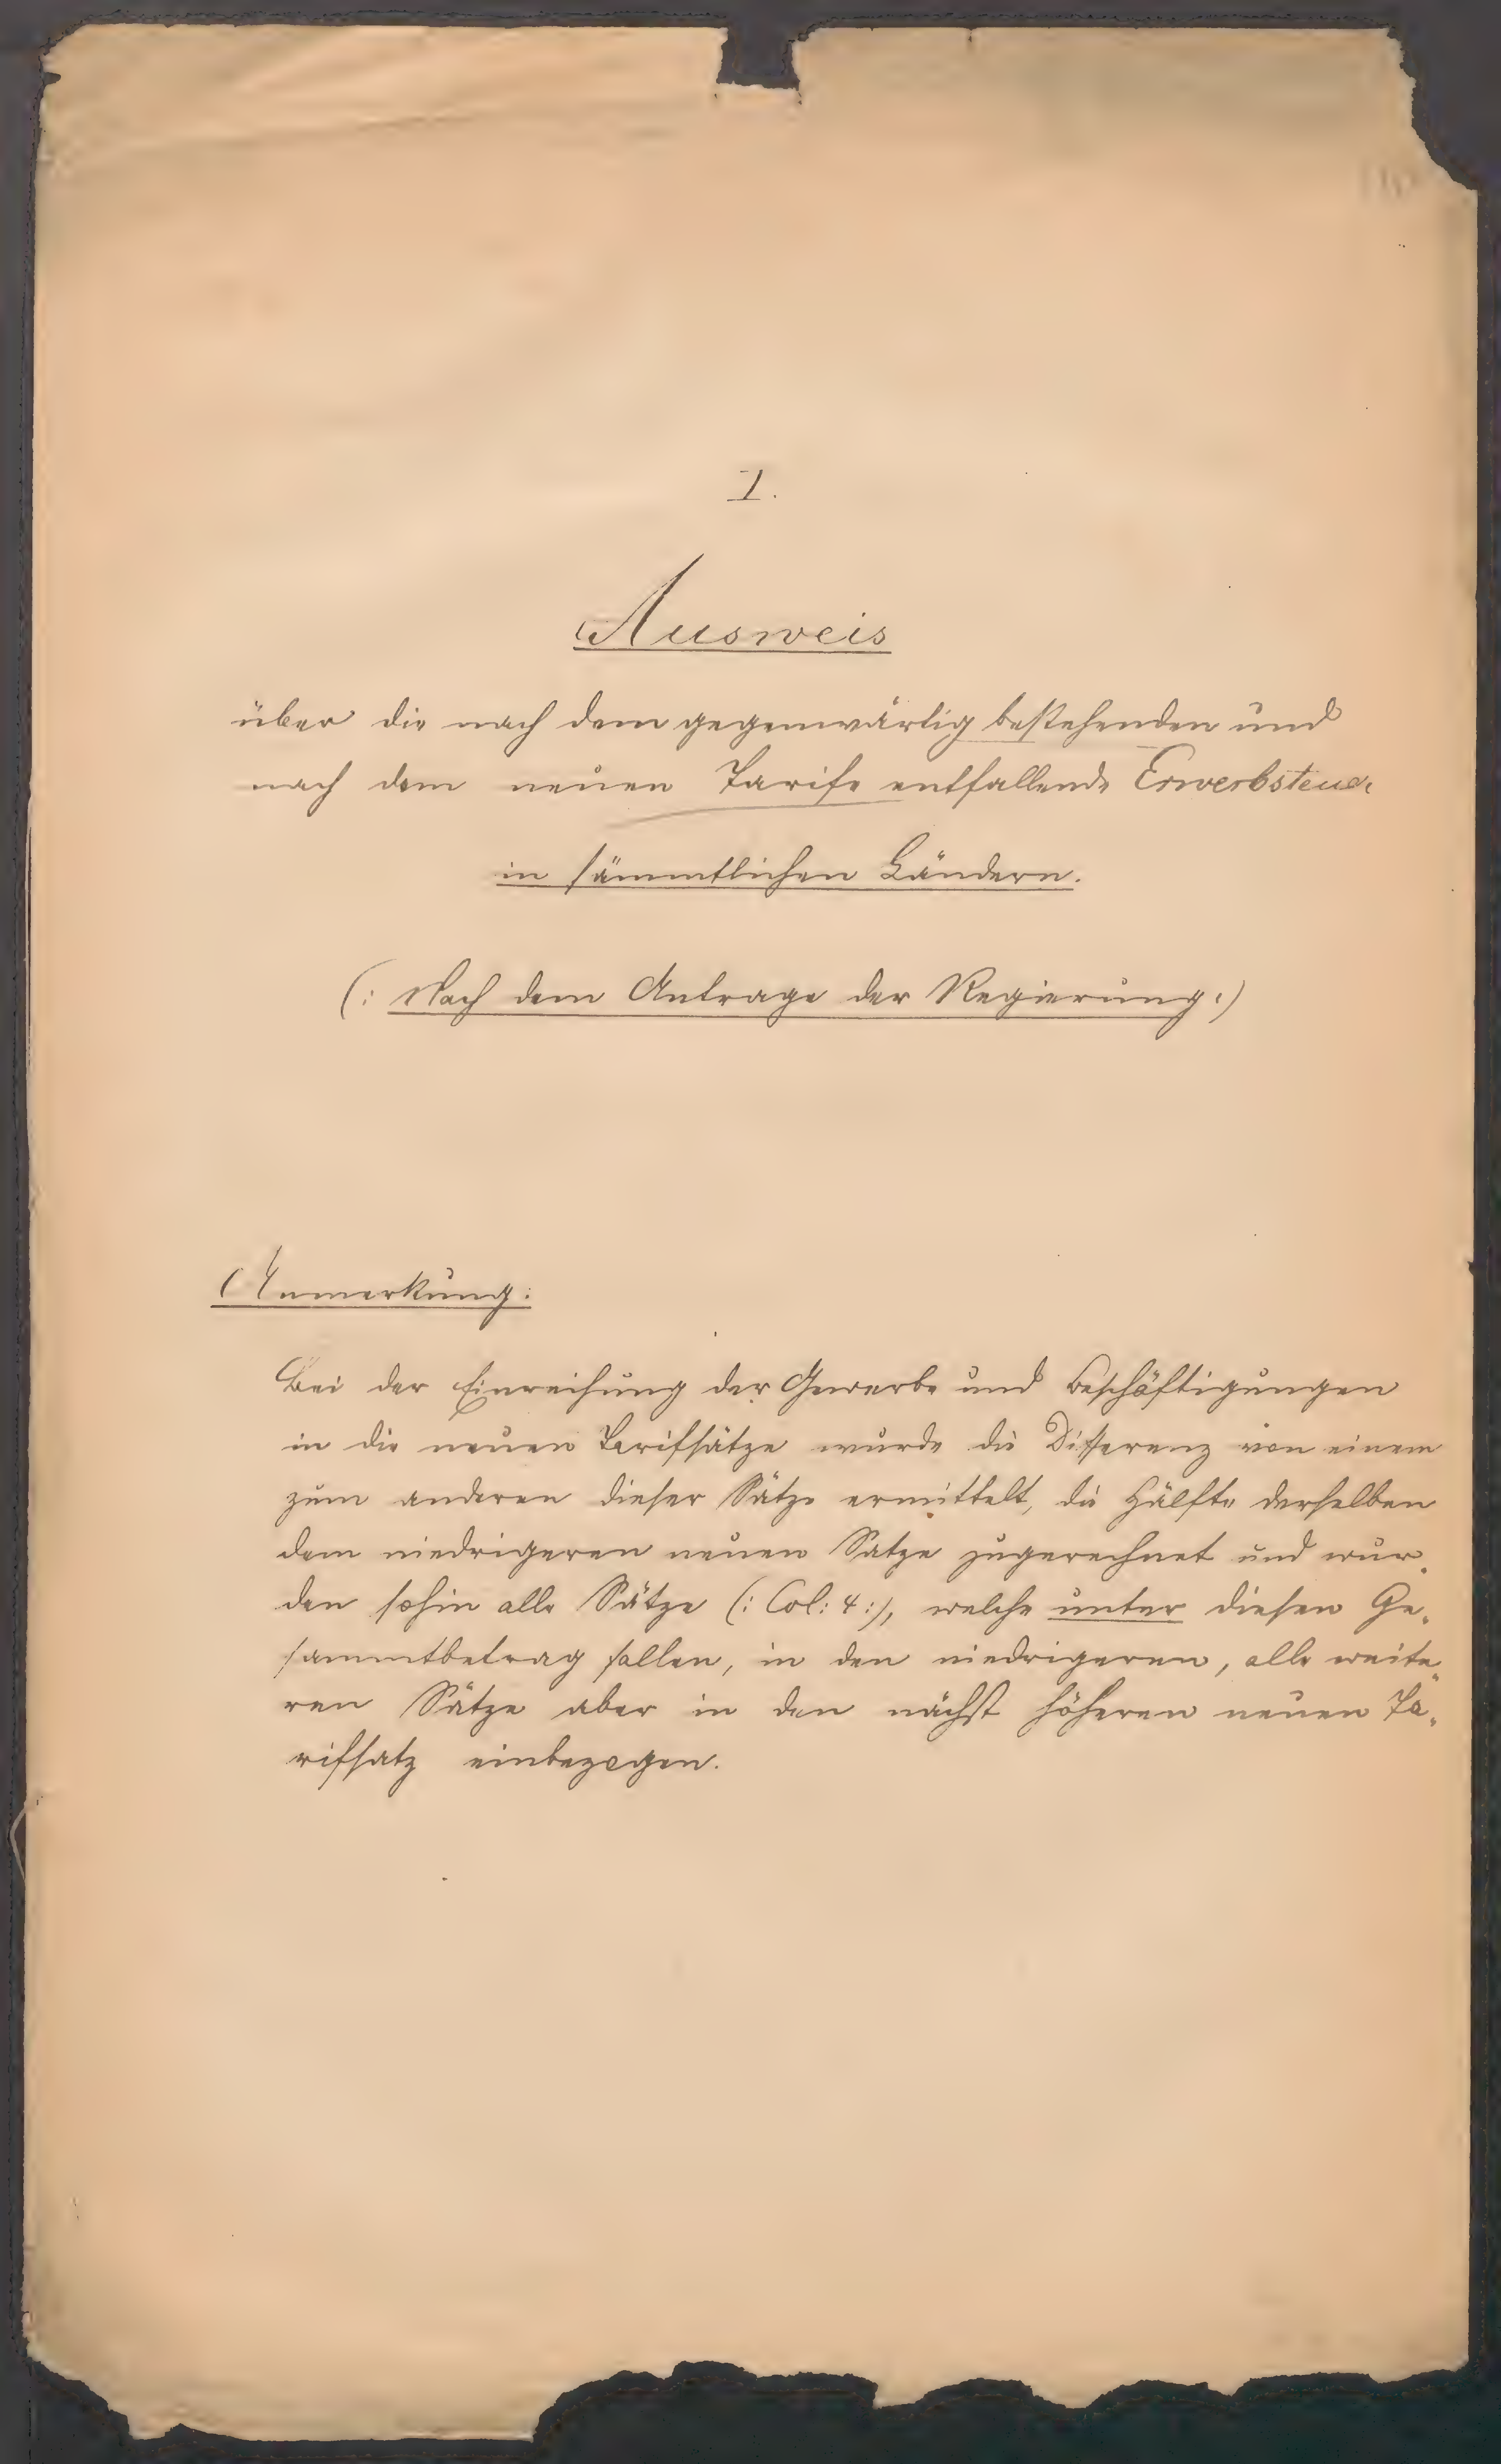 I.
Ausweis
über die nach dem gegenwärtig bestehenden und
nach dem neuen Tarife entfallende Erwerbsteuer
in sämmtlichen Ländern.
(: Nach dem Antrage der Regierung :)
Anmerkung:
Bei der Einreihung der Gewerbe und Beschäftigungen
in die neuen Tarifsätze wurde die Differenz von einem
zum anderen dieser Sätze ermittelt, die Hälfte derselben
dem niedrigeren neuen Satze zugerechnet und wur-
den sohin alle Sätze (: Col: 4 :), welche unter diesen Ge-
sammtbetrag fallen, in den niedrigeren, alle weite-
ren Sätze aber in den nächst höheren neuen Ta-
rifsatz einbezogen.